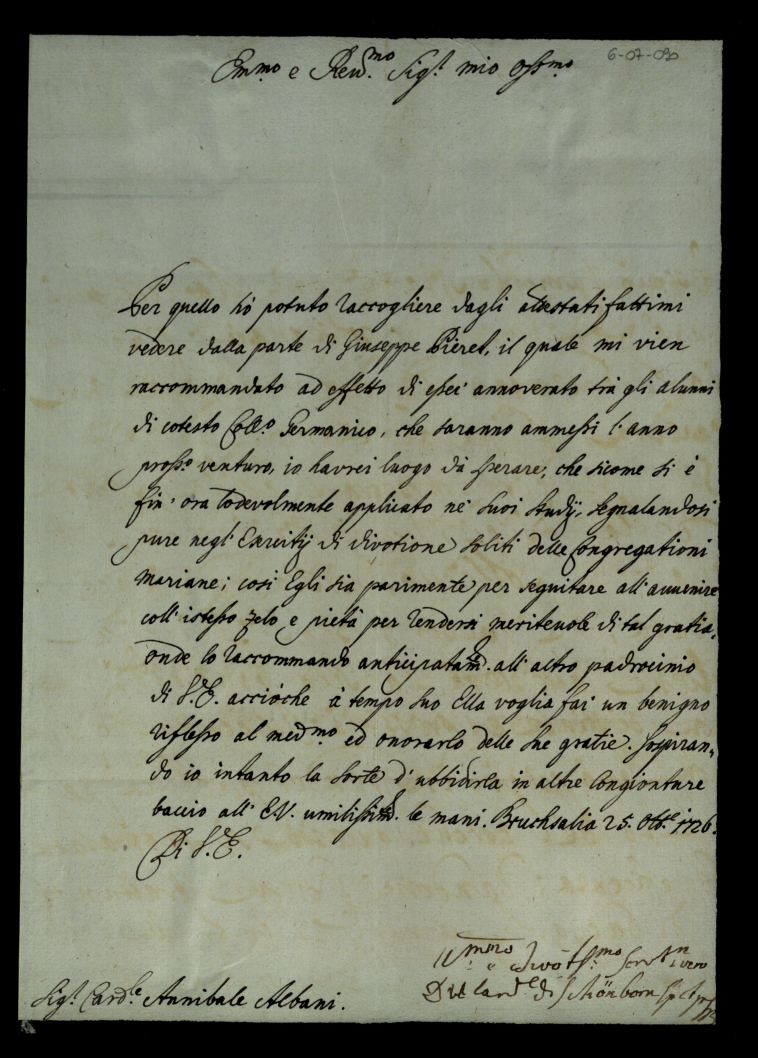 6-07-090
Em.mo e Reu.mo Sig.r mio oss.mo
Per quello hò potuto raccogliere dagli attestati fattimi
vedere dalla parte di Giuseppe Pieret, il quale mi vien
raccommandato ad effetto di esser annoverato trà gli alunni
di cotesto Coll.o Germanico, che saranno ammessi l'anno
pross.o venturo, io havrei luogo dà sperare, che sicome si è
fin' ora lodevolmente applicato ne' suoi studÿ, segnalandosi
pure negl' Exercitÿ di divotione soliti delle Congregationi
Mariane; così Egli sia parimente per seguitare all' auuenire
coll' istesso zelo, e pietà per rendersi meriteuole di tal gratia,
onde lo raccommando anticipatam. all' altro padrocinio
di V.E. acciòche à tempo suo Ella voglia far un benigno
riflesso al med.mo ed onorarlo delle sue gratie. Sospiran„
do io intanto la sorte d' ubbidirla in altre congionture
baccio all' E.V. umilissim. le mani. Bruchsalia 25. Ott.e 1726.
Di V.E.
Sig.r Card.le Annibale Albani.
di Schönborn